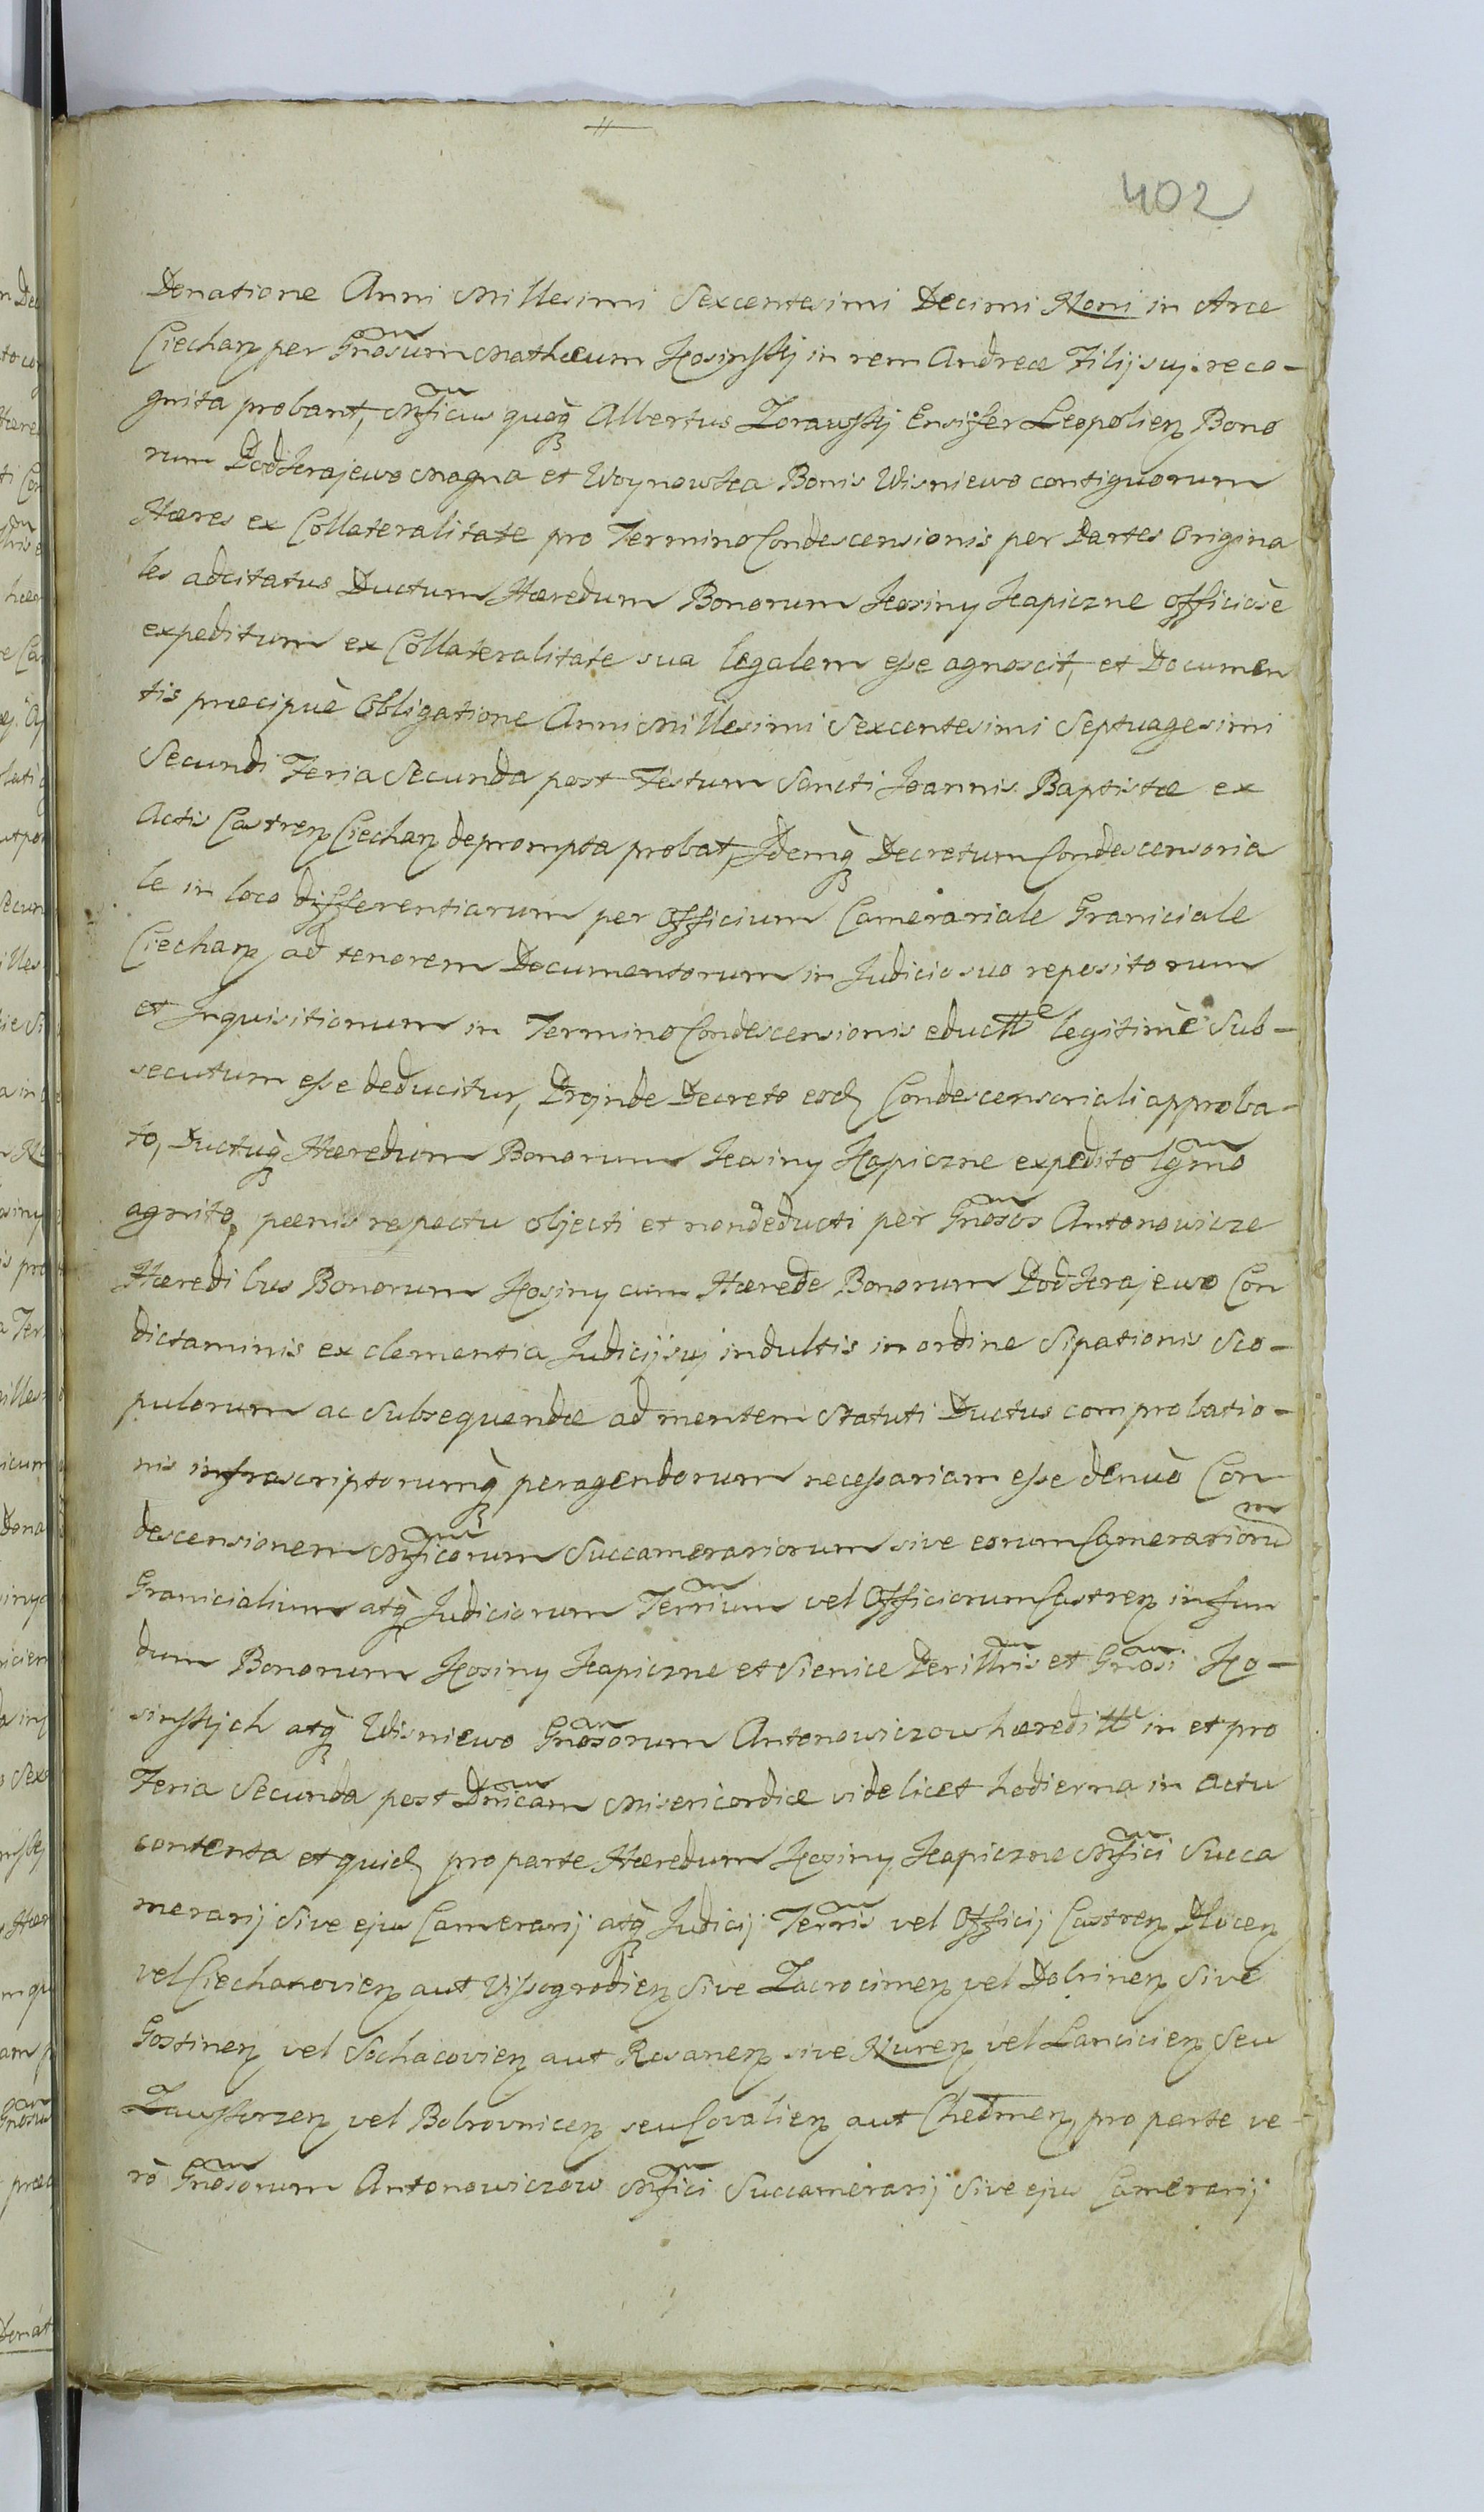 402
Donatione Anni Millesimi Sexcentesimi Decimi Noni in Arce
Ciechan per Gnosum Mathæum Kosinskij in rem Andreæ Filij suj reco-
gnita probant, Mficus quoq Albertus Zorawskij Ensifer Leopolien Bono
rum Podkrajewo Magna et Woynowka Bonis Wisniewo contiguorum
Hæres ex Collateralitate pro Termino Condescensionis per Partes Origina
les adcitatus Ductum Hæredum Bonorum Kosiny Kapiczne officiosè
expeditum ex Collateralitate sua legalem esse agnoscit, et Documen
tis præcipuè Obligatione Anni Millesimi Sexcentesimi Septuagesimi
Secundi Feria Secunda post Festum Sancti Joannis Baptistæ ex
Actis Castren Ciechan deprompta probat, Jdemq Decretum Condescensoria
le in loco differentiarum per Officium Camerariale Graniciale
Ciechan ad tenorem Documentorum in Judicio suo repositorum
et Jnquisitionum in Termino Condescensionis eductte legitimè Sub-
secutum esse deducitur, Projnde Decreto eod Condescensoriali approba-
to, Ductuq Hæredum Bonorum Kosiny Kapiczne expedito lgmo
agnito, pænis respectu objecti et nondeducti per Gnosos Antonowicze
Hæredibus Bonorum Kosiny cum Hærede Bonorum Podkrajewo Con
dictaminis ex clementia Judicij suj indultis in ordine Sipationis Sco-
pulorum ac subsequendæ ad mentem Statuti Ductus comprobatio-
nis infrascriptorumq peragendorum necessariam esse denuò Con
descensionem Mficorum Succamerariorum sive eorum Camerarioru
Granicialium atq Judiciorum Terrium vel Officiorum Castren in fun
dum Bonorum Kosiny Kapiczne et Sienice Perillris et Gnosi Ko-
sinskich atq Wisniewo Gnosorum Antonowiczow hæreditt in et pro
Feria Secunda post Dnicam Misericordiæ videlicet hodierna in actu
contenta et quid pro parte Hæredum Kosiny Kapiczne Mfici Succa
merarij sive ejus Camerarij atq Judicij Terris vel Officij Castren Plocen
vel Ciechanovien aut Vissogrodien sive Zacrocimen vel Dobrinen sive
Gostinen vel Sochacovien aut Rosanen sive Nuren vel Lancicien Seu
Zawskrzen vel Bobrovnicen seu Covalien aut Chedmen, pro parte ve-
rò Gnosorum Antonowiczow Mfici Succamerarij Sive ejus Camerarij